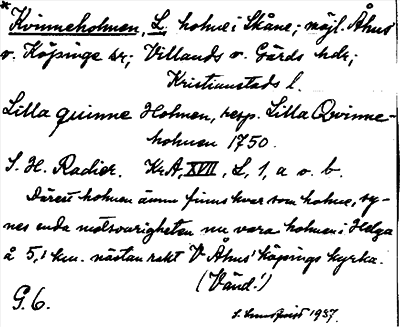 *Kvinneholmen, L., holme i Skåne; möjl. Åhus
o. Köpinge sr; Villands o. Gärds hdr;
Kristianstads l.
Lilla quinne Holmen, resp. Lilla Qvinne-
holmen 1750.
S. H. Radier. KrA, XVII, L, 1, a o. b.
Därest holmen ännu finns kvar som holme, sy-
nes enda motsvarigheten nu vara holmen i Helge
å 5,1 km. nästan rakt V Åhus' Köpings kyrka.
(Vänd!)
G. 6.
1937.